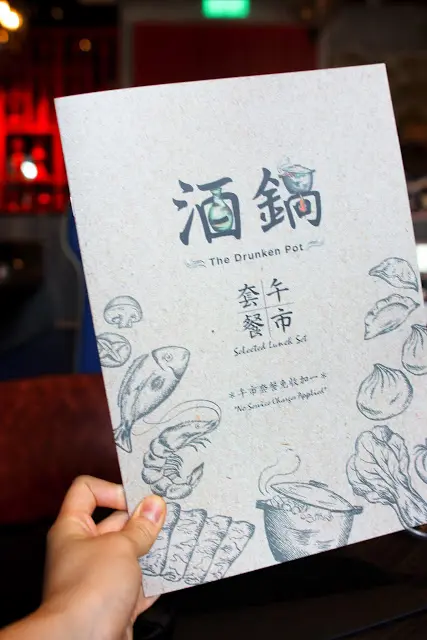 酒鍋
The Drunken Pot
午市
套餐
Selected Lunch Set
＊午市套餐免收加一＊
"No Service Charge Applied"